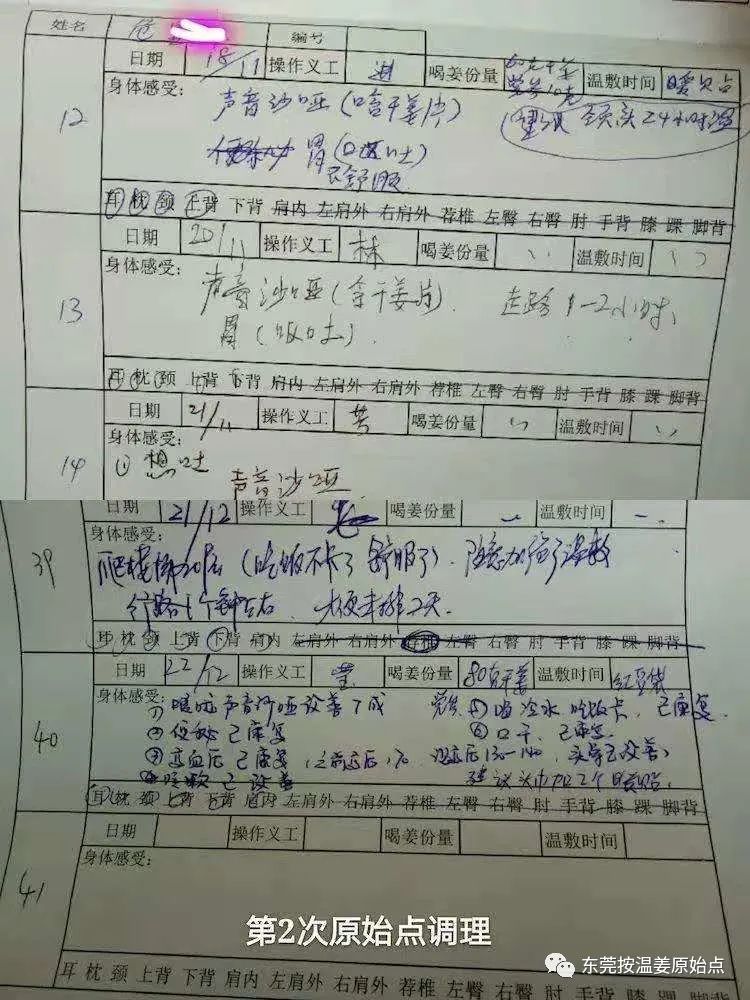 姓名 编号
12
日期 18/11 操作义工 喝姜份量 80克干姜 温敷时间 暖贝占
身体感受:
声音沙哑(含干姜片)
胃(口 吐)
不舒服
额头24小时温
耳 枕 颈 正背 下背 肩内 左肩外 右肩外 荐椎 左臀 右臀 肘 手背 膝 踝 脚背
13
日期 20/11 操作义工 林 喝姜份量 〃 温敷时间 〃
身体感受:
声音沙哑(含干姜片). 走路1-2小时.
胃(饭口吐).
耳 枕 颈 上背 下背 肩内 左肩外 右肩外 荐椎 左臀 右臀 肘 手背 膝 踝 脚背
14
日期 21/11 操作义工 喝姜份量 〃 温敷时间 〃
身体感受:
① 想吐
声音沙哑
39
日期 21/12 操作义工 喝姜份量 温敷时间
身体感受:
爬楼梯20层(吃饭不卡了 舒服了).
行路1个钟左右. 大便未排2天.
耳 枕 颈 上背 下背 肩内 左肩外 右肩外 荐椎 左臀 右臀 肘 手背 膝 踝 脚背
40
日期 22/12 操作义工 喝姜份量 80克干姜 温敷时间 红豆袋
身体感受:
① 声音沙哑改善了 成 ⑤ 喝冷水 吃饭卡, 已康复
② 便秘 已康复 ⑥ 口干, 已康复
③ 高血压 已康复 头晕已改善)
④ 咳嗽 已改善 建议 加2个暖贴.
耳 枕 颈 上背 下背 肩内 左肩外 右肩外 荐椎 左臀 右臀 肘 手背 膝 踝 脚背
41
日期 操作义工 喝姜份量 温敷时间
身体感受:
第2次原始点调理
东莞按温姜原始点
耳 枕 颈 上背 下背 肩内 左肩外 右肩外 荐椎 左臀 右臀 肘 手背 膝 踝 脚背